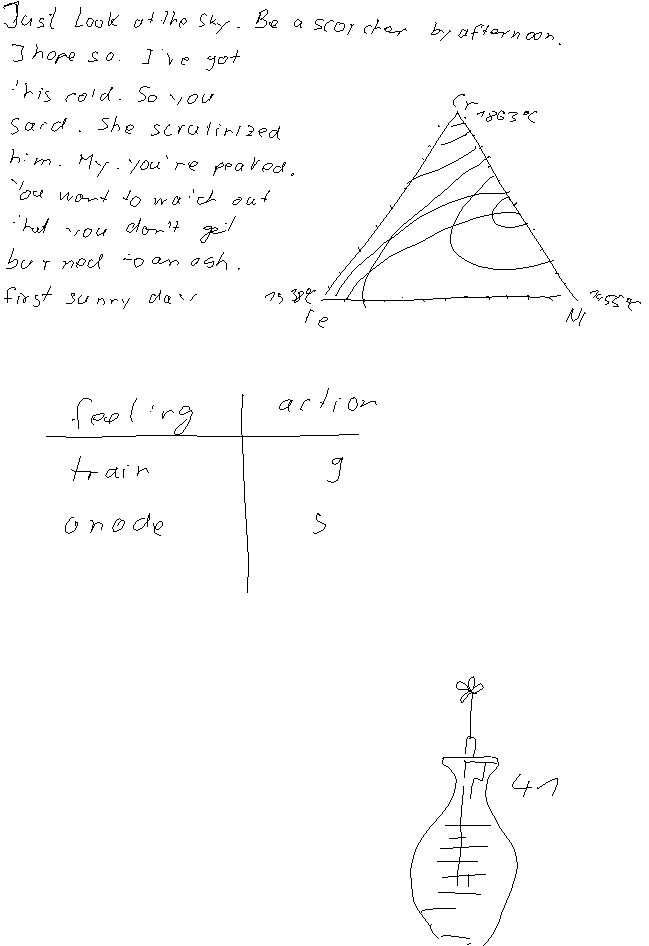 Just Look at the sky. Be a scorcher by afternoon.
I hope so. I've got
this cold. So you
said. She scrutinized
him. My. you're peaked.
You want to watch out
that you don't get
burned to an ash.
first sunny day
Cr
1863°C
1538°C
Fe
1455°C
Ni
feeling action
train g
anode s
41